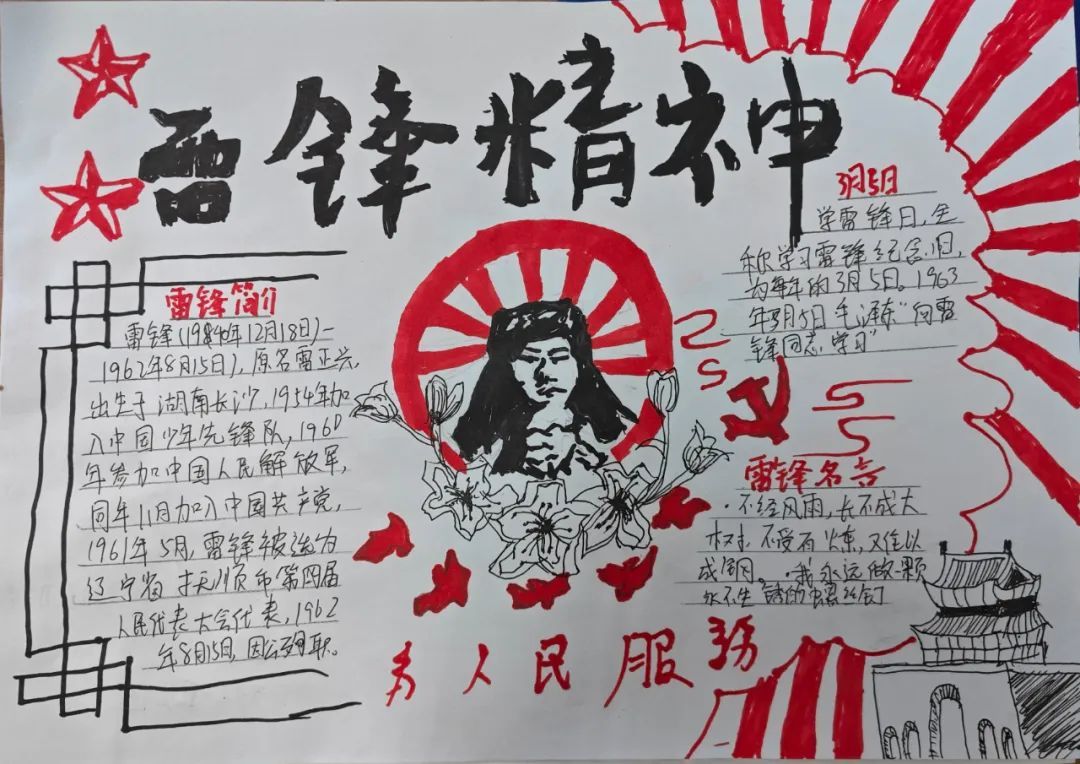 雷锋精神
雷锋简介
雷锋(1984年12月18日)-
1962年8月15日),原名雷正兴,
出生于湖南长沙,1954年加
入中国少年先锋队,1960
年参加中国人民解放军,
同年11月加入中国共产党,
1961年5月,雷锋被选为
辽宁省抚顺市第四届
人民代表大会代表,1962
年8月15日,因公殉职。
3月5日
学雷锋日,全
称学习雷锋纪念日,
为每年的3月5日。1963
年3月5日毛泽东“向雷
锋同志学习”
雷锋名言
·不经风雨,长不成大
树,不受百炼,难以
成钢。·我永远做一颗
永不生锈的螺丝钉
为人民服务